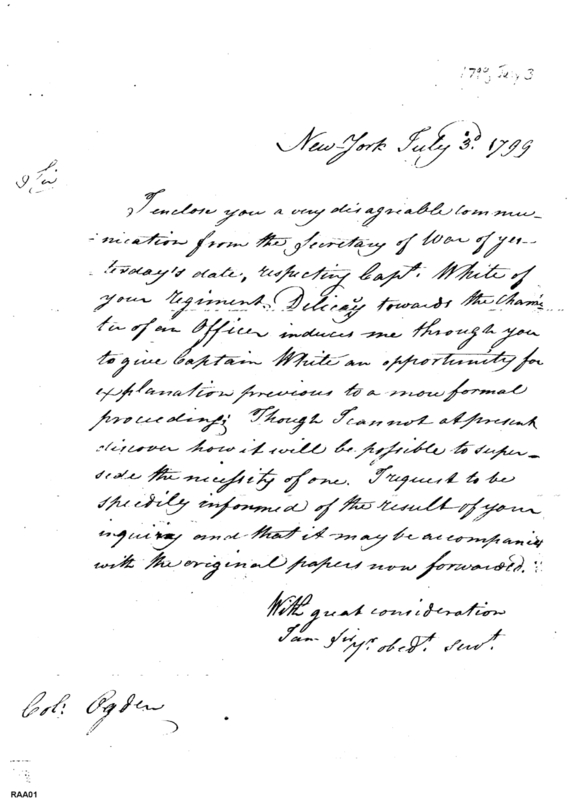 1799 July 3
New-York July 3d. 1799
Sir
I enclose you a very disagreable commu-
nication from the Secretary of War of yes-
terday's date, respecting Capt. White of
your regiment. Delicacy towards the Charac-
ter of an Officer induces me through you
to give Captain White an opportunity for
explanation previous to a more formal
proceeding; Though I cannot at present
discover how it will be possible to super-
sede the necessity of one. I request to be
speedily informed of the result of your
inquiry and that it may be accompanied
with the original papers now forwarded.
With great consideration
I am Sir Yr. obedt. servt.
Col: Ogden
RAA01